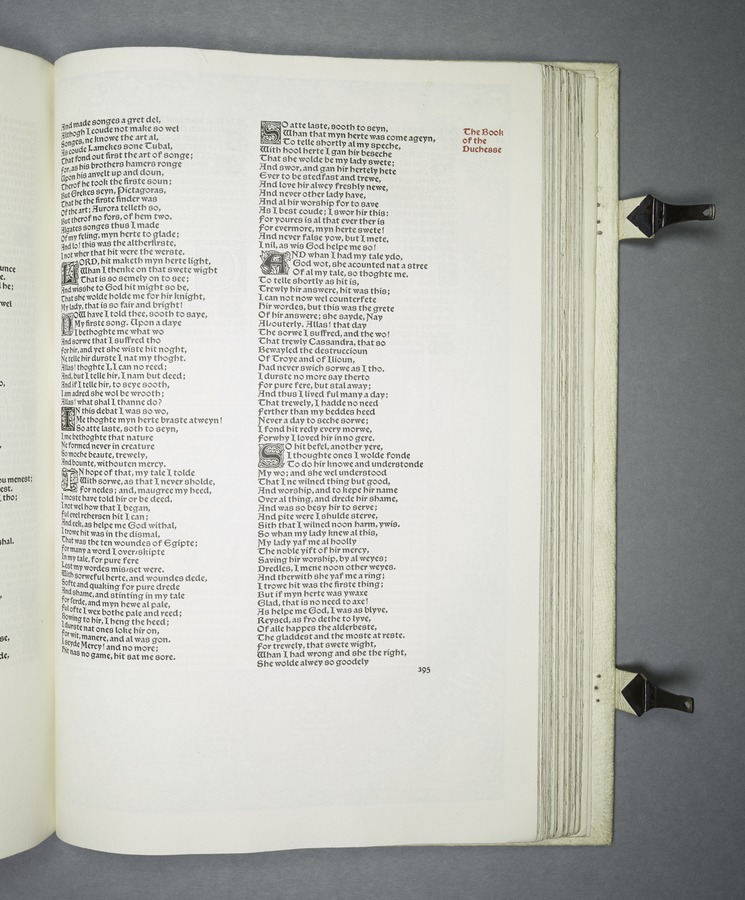 unce
e.
he;
wel
o,
ou menest;
est.
tho;
shal.
se,
de,
And made songes a gret del,
Althogh I coude not make so wel
Songes, ne knowe the art al,
As coude Lamekes sone Tubal,
That fond out first the art of songe;
For, as his brothers hamers ronge
Upon his anvelt up and doun,
Therof he took the firste soun;
But Grekes seyn, Pictagoras,
That he the firste finder was
Of the art; Aurora telleth so,
But therof no fors, of hem two.
Algates songes thus I made
Of my feling, myn herte to glade;
And lo! this was the altherfirste,
I not wher that hit were the werste.
LORD, hit maketh myn herte light,
Whan I thenke on that swete wight
That is so semely on to see;
And wisshe to God hit might so be,
That she wolde holde me for hir knight,
My lady, that is so fair and bright!
NOW have I told thee, sooth to saye,
My firste song. Upon a daye
I bethoghte me what wo
And sorwe that I suffred tho
For hir, and yet she wiste hit noght,
Ne telle hir durste I nat my thoght.
Allas! thoghte I, I can no reed;
And, but I telle hir, I nam but deed;
And if I telle hir, to seye sooth,
I am adred she wol be wrooth;
Allas! what shal I thanne do?
IN this debat I was so wo,
Me thoghte myn herte braste atweyn!
So atte laste, soth to seyn,
I me bethoghte that nature
Ne formed never in creature
So moche beaute, trewely,
And bounte, withouten mercy.
IN hope of that, my tale I tolde
With sorwe, as that I never sholde,
For nedes; and, maugree my heed,
I moste have told hir or be deed.
I not wel how that I began,
Ful evel rehersen hit I can;
And eek, as helpe me God withal,
I trowe hit was in the dismal,
That was the ten woundes of Egipte;
For many a word I over-skipte
In my tale, for pure fere
Lest my wordes mis-set were.
With sorweful herte, and woundes dede,
Softe and quaking for pure drede
And shame, and stinting in my tale
For ferde, and myn hewe al pale,
Ful ofte I wex bothe pale and reed;
Bowing to hir, I heng the heed;
I durste nat ones loke hir on,
For wit, manere, and al was gon.
I seyde Mercy! and no more;
Hit nas no game, hit sat me sore.
SO atte laste, sooth to seyn,
Whan that myn herte was come ageyn,
To telle shortly al my speche,
With hool herte I gan hir beseche
That she wolde be my lady swete;
And swor, and gan hir hertely hete
Ever to be stedfast and trewe,
And love hir alwey freshly newe,
And never other lady have,
And al hir worship for to save
As I best coude; I swor hir this:
For youres is al that ever ther is
For evermore, myn herte swete!
And never false yow, but I mete,
I nil, as wis God helpe me so!
AND whan I had my tale ydo,
God wot, she acounted nat a stree
Of al my tale, so thoghte me.
To telle shortly as hit is,
Trewly hir answere, hit was this;
I can not now wel counterfete
Hir wordes, but this was the grete
Of hir answere; she sayde, Nay
Al-outerly. Allas! that day
The sorwe I suffred, and the wo!
That trewly Cassandra, that so
Bewayled the destruccioun
Of Troye and of Ilioun,
Had never swich sorwe as I tho.
I durste no more say therto
For pure fere, but stal away;
And thus I lived ful many a day:
That trewely, I hadde no need
Ferther than my beddes heed
Never a day to seche sorwe;
I fond hit redy every morwe,
Forwhy I loved hir in no gere.
SO hit befel, another yere,
I thoughte ones I wolde fonde
To do hir knowe and understonde
My wo; and she wel understood
That I ne wilned thing but good,
And worship, and to kepe hir name
Over al thing, and drede hir shame,
And was so besy hir to serve;
And pite were I shulde sterve,
Sith that I wilned noon harm, ywis.
So whan my lady knew al this,
My lady yaf me al hoolly
The noble yift of hir mercy,
Saving hir worship, by al weyes;
Dredles, I mene noon other weyes.
And therwith she yaf me a ring;
I trowe hit was the firste thing;
But if myn herte was ywaxe
Glad, that is no need to axe!
As helpe me God, I was as blyve,
Reysed, as fro dethe to lyve,
Of alle happes the alderbeste,
The gladdest and the moste at reste.
For trewely, that swete wight,
Whan I had wrong and she the right,
She wolde alwey so goodely
The Book
of the
Duchesse
195